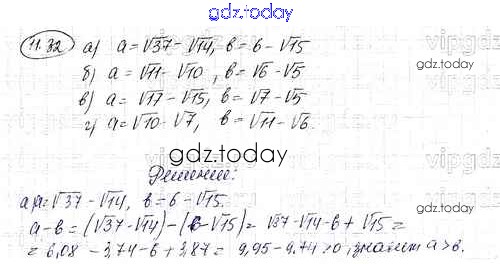 gdz.today
11.32 а) a = √37 - √14, в = 6 - √15
б) a = √11 - √10, в = √6 - √5
в) a = √17 - √15, в = √7 - √5
г) a = √10 - √7, в = √11 - √6.
gdz.today
gdz.today
gdz.today
Решение:
а) a = √37 - √14, в = 6 - √15.
a - в = (√37 - √14) - (6 - √15) = √37 - √14 - 6 + √15 =
= 6,08 - 3,74 - 6 + 3,87 = 9,95 - 9,74 > 0, значит a > в.
gdz.today